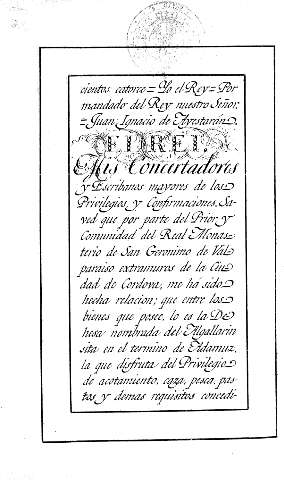 cientos catorce = Yo el Rey = Por
mandado del Rey nuestro Señor,
= Juan Ignacio de Ayestarán.
EL REI.
Mis Concertadores
y Escribanos mayores de los
Privilegios y Confirmaciones, Sa-
ved que por parte del Prior y
Comunidad del Real Monas-
terio de San Geronimo de Val-
paraiso extramuros de la Ciu-
dad de Cordova, me há sido
hecha relacion; que entre los
bienes que posee, lo es la De-
hesa nombrada del Algallarin
sita en el termino de Adamuz,
la que disfruta del Privilegio
de acotamiento, caza, pesca, pas-
tos y demas requisitos concedi-